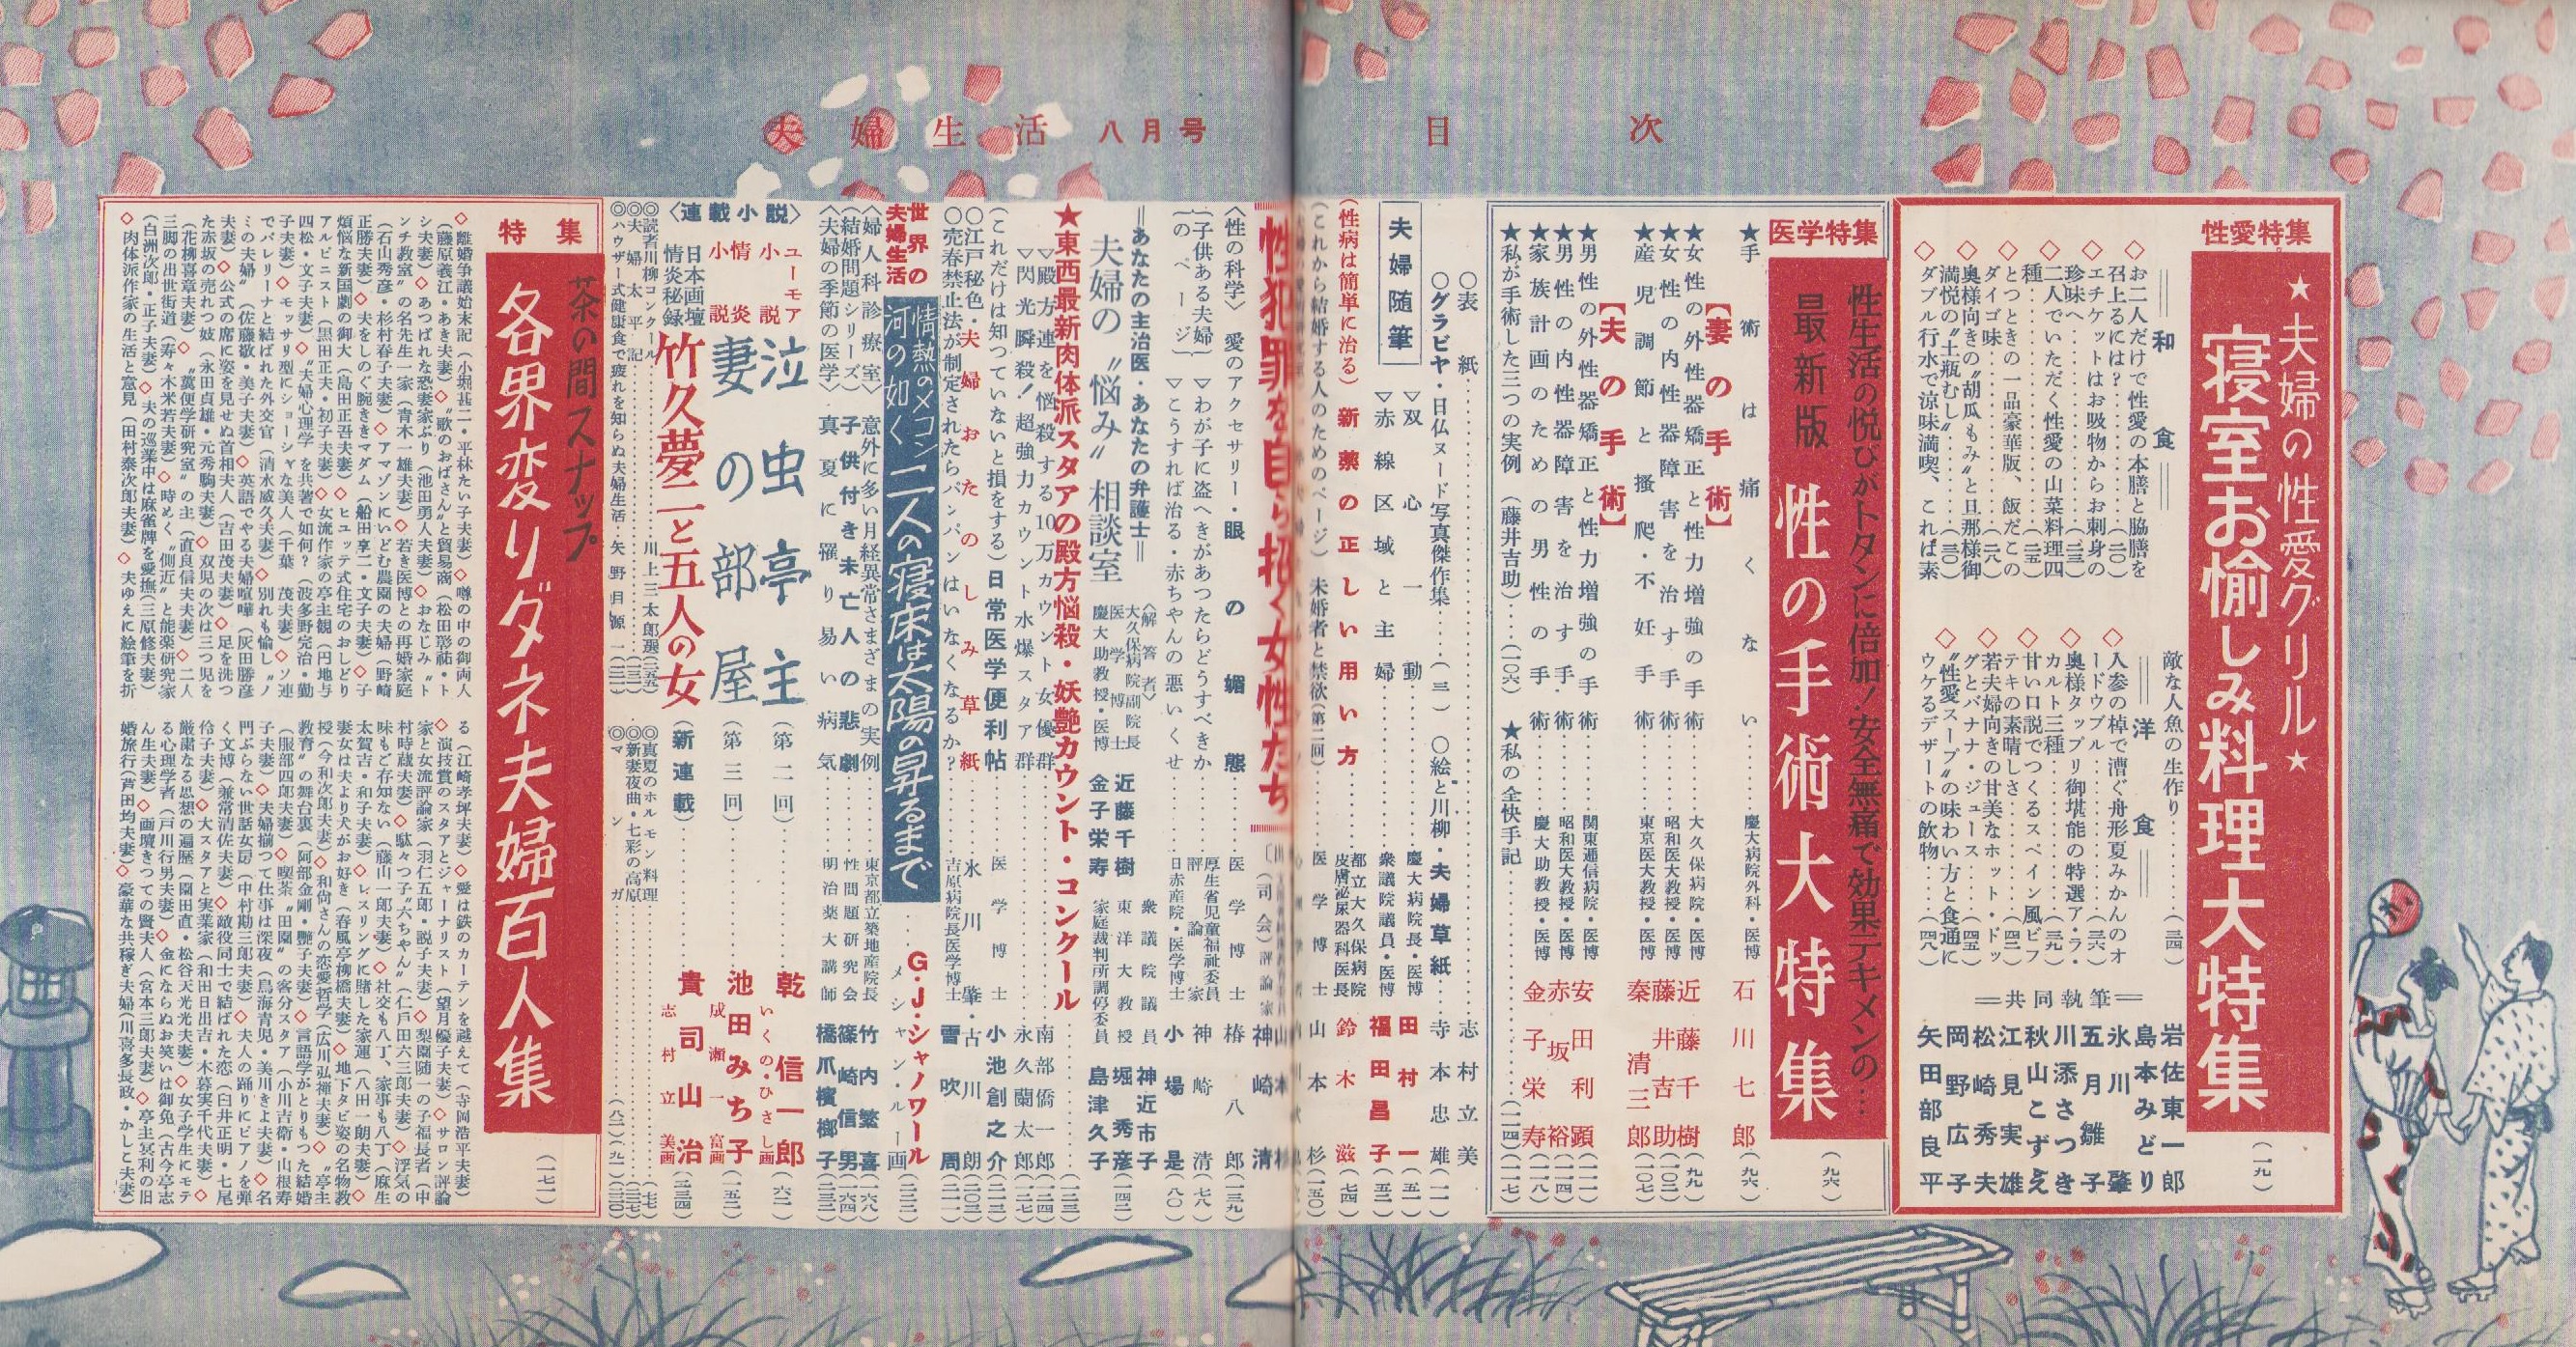 夫婦生活 八月号 目次
性愛特集
★夫婦の性愛グリル★
寝室お愉しみ料理大特集
(一九)
══和食══
◇お二人だけで性愛の本膳と脇膳を
召上るには?………(二〇)
◇エチケットはお吸物からお刺身の
珍味へ………(二三)
◇二人でいただく性愛の山菜料理四
種………(二五)
◇とつときの一品豪華版、飯だこの
ダイゴ味………(二八)
◇奥様向きの〝胡瓜もみ〟と旦那様御
満悦の〝土瓶むし〟………(三〇)
◇ダブル行水で涼味満喫、これぱ素
敵な人魚の生作り………(三四)
══洋食══
◇人参の棹で漕ぐ舟形夏みかんのオ
ードウブル………(三六)
◇奥様タップリ御堪能の特選ア・ラ・
カルト三種………(三九)
◇甘い口説でつくるスペイン風ビフ
テキの素晴しさ………(四二)
◇若夫婦向きの甘美なホット・ドッ
グとバナナ・ジュース………(四五)
◇〝性愛スープ〟の味わい方と食通に
ウケるデザートの飲物………(四八)
=共同執筆=
岩佐東一郎
島本みどり
氷川肇
五月雛子
川添さつき
秋山こずえ
江見実雄
松崎秀夫
岡野広子
矢田部良平
医学特集
性生活の悦びがトタンに倍加!安全無痛で効果テキメンの…
最新版 性の手術大特集
(九六)
★手術は痛くない……慶大病院外科・医博 石川七郎(九六)
【妻の手術】
★女性の外性器矯正と性力増強の手術……大久保病院・医博 近藤千樹(九九)
★女性の内性器障害を治す手術……昭和医大教授・医博 藤井吉助(一〇二)
★産児調節と掻爬・不妊手術……東京医大教授・医博 秦清三郎(一〇七)
【夫の手術】
★男性の外性器矯正と性力増強の手術……関東逓信病院・医博 安田利顕(一一一)
★男性の内性器障害を治す手術……昭和医大教授・医博 赤坂裕(一一四)
★家族計画のための男性の手術……慶大助教授・医博 金子栄寿(一一八)
★私が手術した三つの実例(藤井吉助)……(一〇六) ★私の全快手記……(一一四)(一一七)
○表紙……志村立美
○グラビヤ・日仏ヌード写真傑作集……(三) ○絵と川柳・夫婦草紙……寺本忠雄(一一)
夫婦随筆
▽双心一動……慶大病院長・医博 田村一(五一)
▽赤線区域と主婦……衆議院議員・医博 福田昌子(五二)
(性病は簡単に治る)新薬の正しい用い方……都立大久保病院皮膚泌尿器科医長 鈴木滋(七四)
(これから結婚する人のためのページ)未婚者と禁欲(第二回)……医学博士 山本杉(一五〇)
性犯罪を自ら招く女性たち
(司会)評論家 神崎清
〈性の科学〉 愛のアクセサリー・眼の媚態……医学博士 椿八郎(一三九)
(子供ある夫婦のページ)
▽わが子に盗へきがあつたらどうすべきか 厚生省児童福祉委員 評論家 神崎清(七八)
▽こうすれば治る・赤ちやんの悪いくせ 日赤産院・医学博士 小場是(八〇)
=あなたの主治医・あなたの弁護士=
夫婦の〝悩み〟相談室
〈解答者〉
大久保病院副院長 医学博士 近藤千樹
慶大助教授・医博 金子栄寿
衆議院議員 神近市子
東洋大教授 堀秀彦
家庭裁判所調停委員 島津久子
(一四二)
★東西最新肉体派スタアの殿方悩殺・妖艶カウント・コンクール……(一二三)
▽殿方連を悩殺する10万カウント女優群……南部僑一郎(一二四)
▽閃光瞬殺!超強力カウント水爆スタア群……永久蘭太郎(一二七)
(これだけは知つていないと損をする)日常医学便利帖……医学博士 小池創之介(二一三)
○江戸秘色・夫婦おたのしみ草紙……氷川肇・古川朗(二〇三)
○売春禁止法が制定されたらパンパンはいなくなるか?……吉原病院長医学博士 雪吹周(二一一)
世界の夫婦生活
情熱のメコン河の如く 二人の寝床は太陽の昇るまで
G・J・シャノワール
メシャン・ルー画(三三二)
〈婦人科診療室〉 意外に多い月経異常さまざまの実例……東京都立築地産院長 竹内繁喜(一六八)
(結婚問題シリーズ)子供付き未亡人の悲劇……性問題研究会 篠崎信男(一六四)
〈夫婦の季節の医学〉 真夏に罹り易い病気……明治薬大講師 橋爪檳榔子(二三二)
〈連載小説〉
ユーモア小説 泣虫亭主(第二回)……乾信一郎 いくの・ひさし画(六二)
情炎小説 妻の部屋(第三回)……池田みち子 成瀬一富画(一五二)
日本画壇情炎秘録 竹久夢二と五人の女(新連載)……貴司山治 志村立美画(二三四)
◎読者川柳コンクール……川上三太郎選(二五五)
◎夫婦太平記……(三一)
◎ハウザー式健康食で疲れを知らぬ夫婦生活・矢野目源一(二二二)
◎真夏のホルモン料理……(一七)
◎新妻夜曲・七彩の高原……(二三七)
◎マンガ……(八二)(九一)(二三〇)
特集
茶の間スナップ
各界変りダネ夫婦百人集
(一七一)
◇離婚争議始末記(小堀甚二・平林たい子夫妻)◇噂の中の御両人
(藤原義江・あき夫妻)◇〝歌のおばさん〟と貿易商(松田彰祐・ト
シ夫妻)◇あつぱれな恐妻家ぶり(池田勇人夫妻)◇おなじみ〝ト
ンチ教室〟の名先生一家(青木一雄夫妻)◇若き医博との再婚家庭
(石山秀彦・杉村春子夫妻)◇アマゾンにいどむ農園の夫婦(野崎
正勝夫妻)◇夫をしのぐ腕ききマダム(船田享二・文子夫妻)◇子
煩悩な新国劇の御大(島田正吾夫妻)◇ヒュッテ式住宅のおしどり
アルピニスト(黒田正夫・初子夫妻)◇女流作家の亭主観(円地与
四松・文子夫妻)◇〝夫婦心理学〟を共著で如何?(波多野完治・勤
子夫妻)◇モッサリ型にショーシャな美人(千葉茂夫妻)◇ソ連
でバレリーナと結ばれた外交官(清水威久夫妻)◇別れも愉し〝ノ
ミの夫婦〟(佐藤敬・美子夫妻)◇英語でやる夫婦喧嘩(灰田勝彦
夫妻)◇公式の席に姿を見せぬ首相夫人(吉田茂夫妻)◇足を洗つ
た赤坂の売れつ妓(永田貞雄・元秀駒夫妻)◇双児の次は三つ児を
(花柳喜章夫妻)◇〝糞便学研究室〟の主(直良信夫夫妻)◇二人
三脚の出世街道(寿々木米若夫妻)◇時めく〝側近〟と能楽研究家
(白洲次郎・正子夫妻)◇夫の巡業中は麻雀牌を愛撫(三原修夫妻)
◇肉体派作家の生活と意見(田村泰次郎夫妻)◇夫ゆえに絵筆を折
る(江崎孝坪夫妻)◇愛は鉄のカーテンを越えて(寺岡浩平夫妻)
◇演技賞のスタアとジャーナリスト(望月優子夫妻)◇サロン評論
家と女流評論家(羽仁五郎・説子夫妻)◇梨園随一の子福長者(中
村時蔵夫妻)◇駄々つ子〝六ちやん〟(仁戸田六三郎夫妻)◇浮気の
味もご存知ない(藤山一郎夫妻)◇社交も八丁、家事も八丁(麻生
太賀吉・和子夫妻)◇レスリングに賭した家運(八田一朗夫妻)◇
妻女は夫より犬がお好き(春風亭柳橋夫妻)◇地下タビ姿の名物教
授(今和次郎夫妻)◇和尚さんの恋愛哲学(広川弘禅夫妻)◇〝亭主
教育〟の舞台裏(阿部金剛・艶子夫妻)◇言語学がとりもつた結婚
(服部四郎夫妻)◇喫茶〝田園〟の客分スタア(小川吉衛・山根寿
子夫妻)◇夫婦揃つて仕事は深夜(鳥海青児・美川きよ夫妻)◇名
門ぶらない世話女房(中村勘三郎夫妻)◇夫人の踊りにピアノを弾
く文博(兼常清佐夫妻)◇敵役同士で結ばれた恋(臼井正明・七尾
伶子夫妻)◇大スタアと実業家(和田日出吉・木暮実千代夫妻)◇
厳粛なる思想の遍歴(園田直・松谷天光光夫妻)◇女子学生にモテ
る心理学者(戸川行男夫妻)◇金にならぬお笑いは御免(古今亭志
ん生夫妻)◇画壇きつての賢夫人(宮本三郎夫妻)◇亭主冥利の旧
婚旅行(芦田均夫妻)◇豪華な共稼ぎ夫婦(川喜多長政・かしこ夫妻)